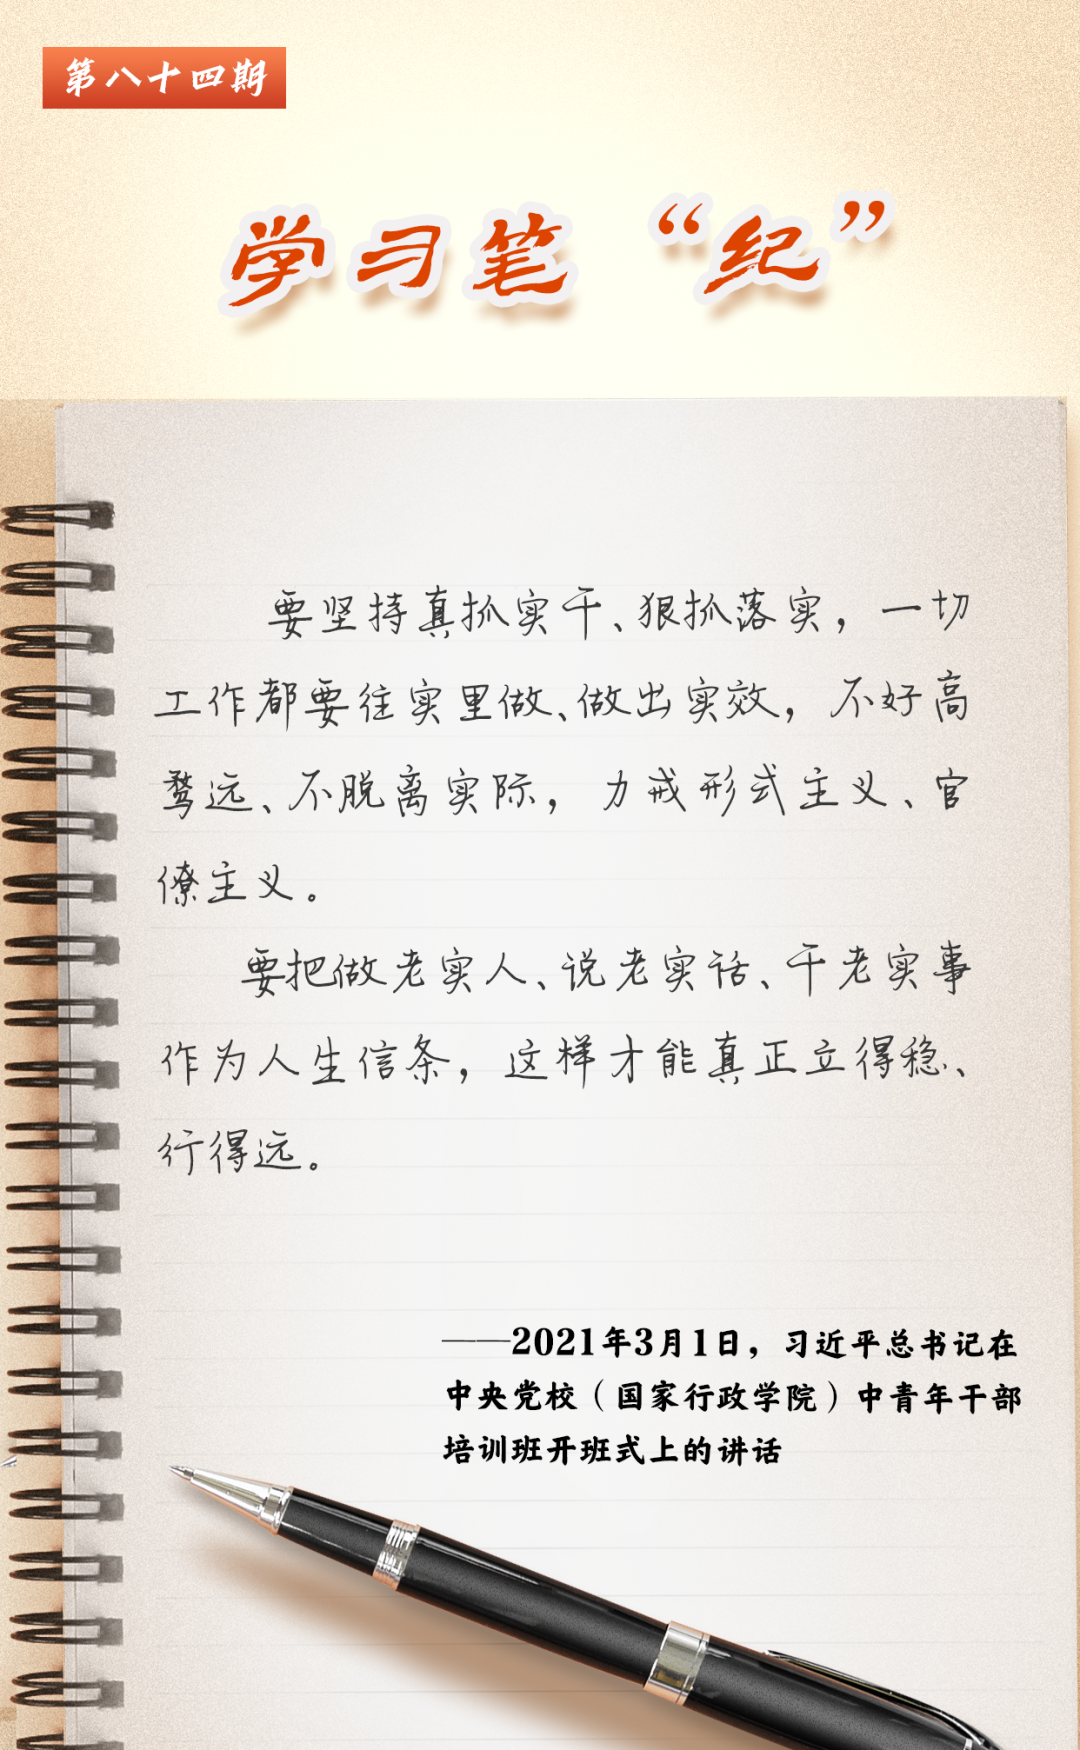 第八十四期
学习笔“纪”
要坚持真抓实干、狠抓落实，一切
工作都要往实里做、做出实效，不好高
骛远、不脱离实际，力戒形式主义、官
僚主义。
要把做老实人、说老实话、干老实事
作为人生信条，这样才能真正立得稳、
行得远。
——2021年3月1日，习近平总书记在
中央党校（国家行政学院）中青年干部
培训班开班式上的讲话